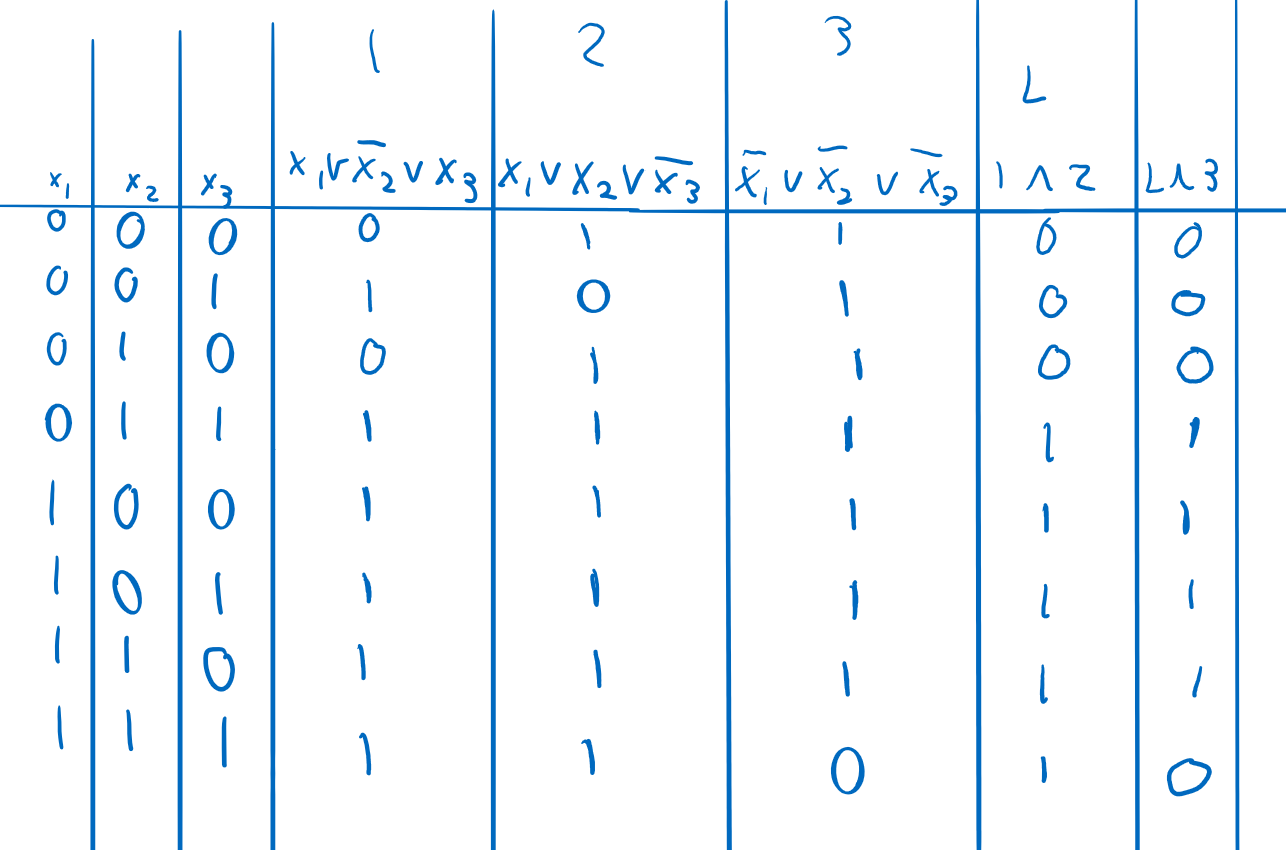 1 2 3
L
x₁ x₂ x₃ x₁ ∨ x̅₂ ∨ x₃ x₁ ∨ x₂ ∨ x̅₃ x̅₁ ∨ x̅₂ ∨ x̅₃ 1 ∧ 2 L ∧ 3
0 0 0 0 1 1 0 0
0 0 1 1 0 1 0 0
0 1 0 0 1 1 0 0
0 1 1 1 1 1 1 1
1 0 0 1 1 1 1 1
1 0 1 1 1 1 1 1
1 1 0 1 1 1 1 1
1 1 1 1 1 0 1 0